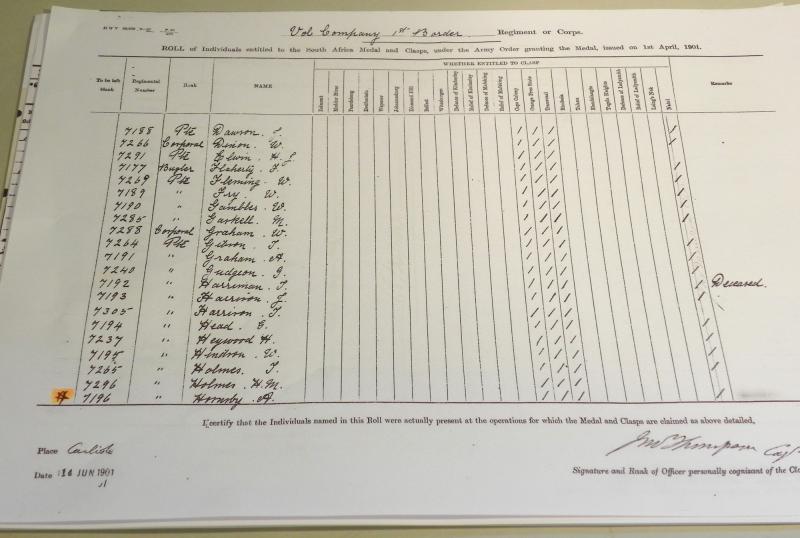 Vol Company 1st Border Regiment or Corps.
ROLL of Individuals entitled to the South Africa Medal and Clasps, under the Army Order granting the Medal, issued on 1st April, 1901.
WHETHER ENTITLED TO CLASP
To be left blank Regimental Number Rank NAME Belmont Modder River Paardeberg Driefontein Wepener Johannesburg Diamond Hill Belfast Wittebergen Defence of Kimberley Relief of Kimberley Defence of Mafeking Relief of Mafeking Cape Colony Orange Free State Transvaal Rhodesia Talana Elandslaagte Tugela Heights Defence of Ladysmith Relief of Ladysmith Laing's Nek Natal Remarks
7188 Pte Dawson. J. / / / /
7266 Corporal Dixon. W. / / / /
7291 Pte Elwin. H. J. / / / /
7177 Bugler Flaherty. T. / / / /
7269 Pte Fleming. W. / / / /
7189 " Fry. W. / / / /
7190 " Gambles. W. / / / /
7285 " Gaskell. M. / / / /
7288 Corporal Graham. W. / / / /
7264 Pte Gibson. T. / / / /
7191 " Graham. A. / / / /
7240 " Gudgeon. G. / / / /
7192 " Harriman. T. / / / / Deceased.
7193 " Harrison. J. / / / /
7305 " Harrison. T. / / / /
7194 " Head. G. / / / /
7237 " Heywood H. / / / /
7195 " Hindson. W. / / / /
7265 " Holmes. T. / / / /
7296 " Holmes. H. M. / / / /
7196 " Hornsby. A. / / / /
I certify that the Individuals named in this Roll were actually present at the operations for which the Medal and Clasps are claimed as above detailed,
Place Carlisle
Thompson Capt
Date 14 JUN 1901
Signature and Rank of Officer personally cognizant of the